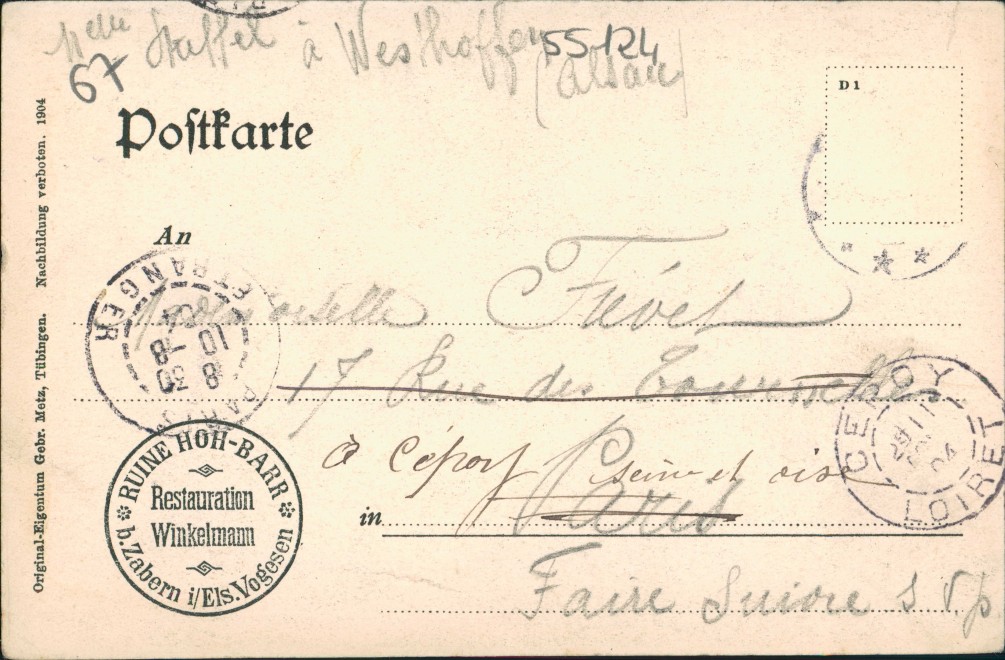 Melle Staffel à Westhoffen
55124
(Alsace)
67
Postkarte
D 1
An
Mademoiselle Févet
17 Rue des Tournelles
à Cépoy seine et oise
in Paris
Faire Suivre S.V.p
PARIS ETRANGER
8 30
10 -8
04
CEPOY
LOIRET
04
RUINE HOH-BARR
Restauration
Winkelmann
b.Zabern i/Els.Vogesen
Original-Eigentum Gebr. Metz, Tübingen. Nachbildung verboten. 1904